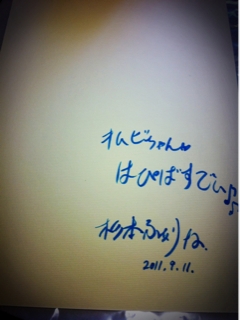 オムビちゃん♡
はぴばすでぃ♪♪
杉本ふぁりな
2011.9.11.